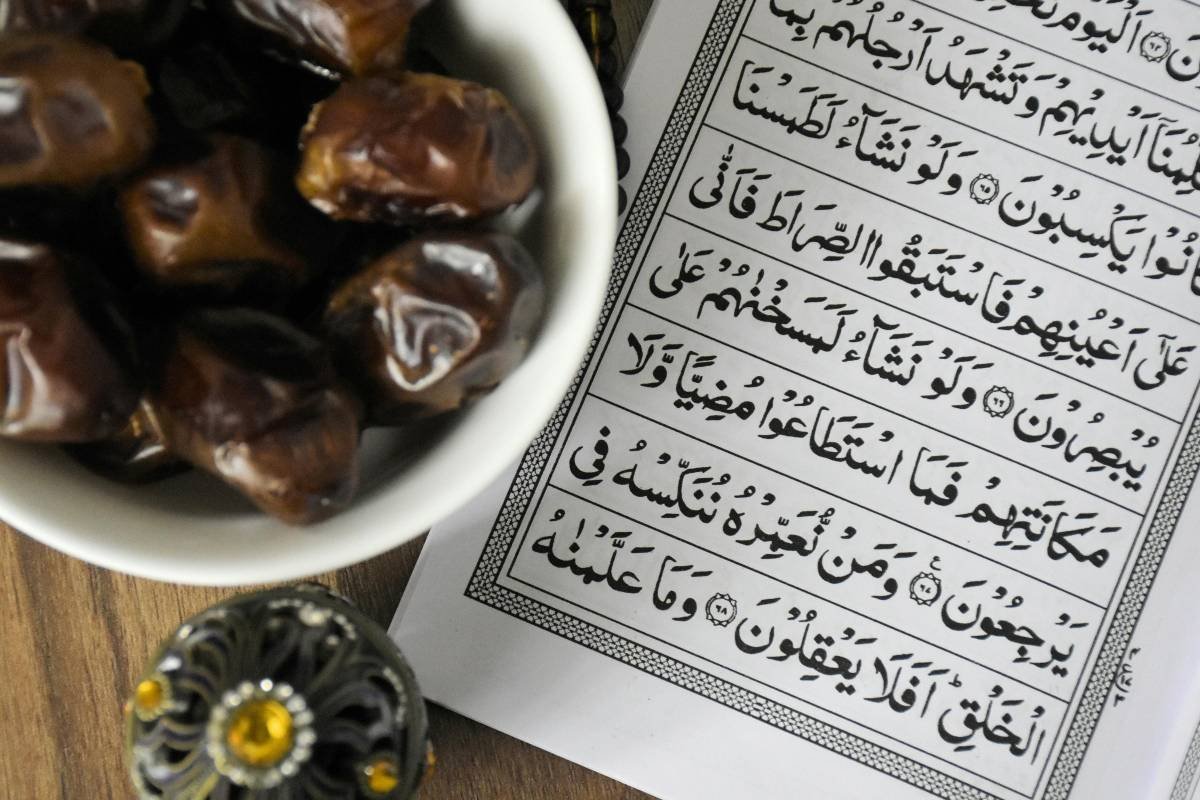 اَلْيَوْمَ
اَيْدِيْهِمْ وَتَشْهَدُ اَرْجُلُهُمْ بِمَا
كَانُوْا يَكْسِبُوْنَ ٦٥ وَلَوْ نَشَآءُ لَطَمَسْنَا
عَلٰٓى اَعْيُنِهِمْ فَاسْتَبَقُوا الصِّرَاطَ فَاَنّٰى
يُبْصِرُوْنَ ٦٦ وَلَوْ نَشَآءُ لَمَسَخْنٰهُمْ عَلٰى
مَكَانَتِهِمْ فَمَا اسْتَطَاعُوْا مُضِيًّا وَّلَا
يَرْجِعُوْنَ ٦٧ ع وَمَنْ نُّعَمِّرْهُ نُنَكِّسْهُ فِى
الْخَلْقِ ؕ اَفَلَا يَعْقِلُوْنَ ٦٨ وَمَا عَلَّمْنٰهُ